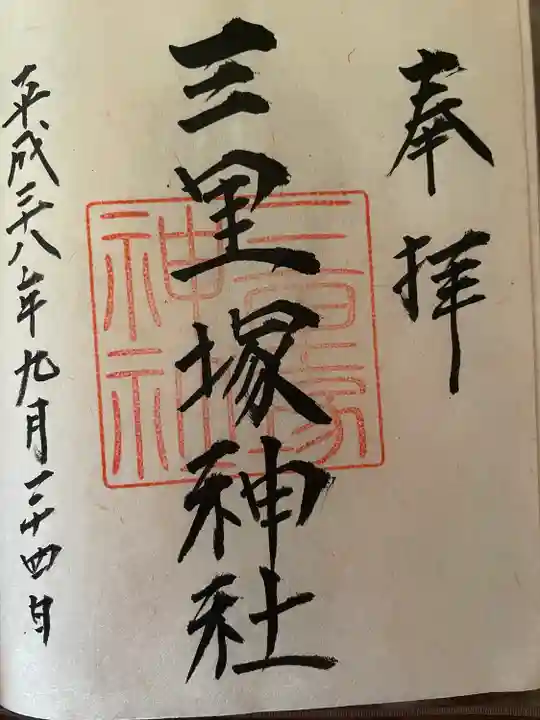 奉拝
三里塚神社
三里塚神社
平成二十八年九月二十四日